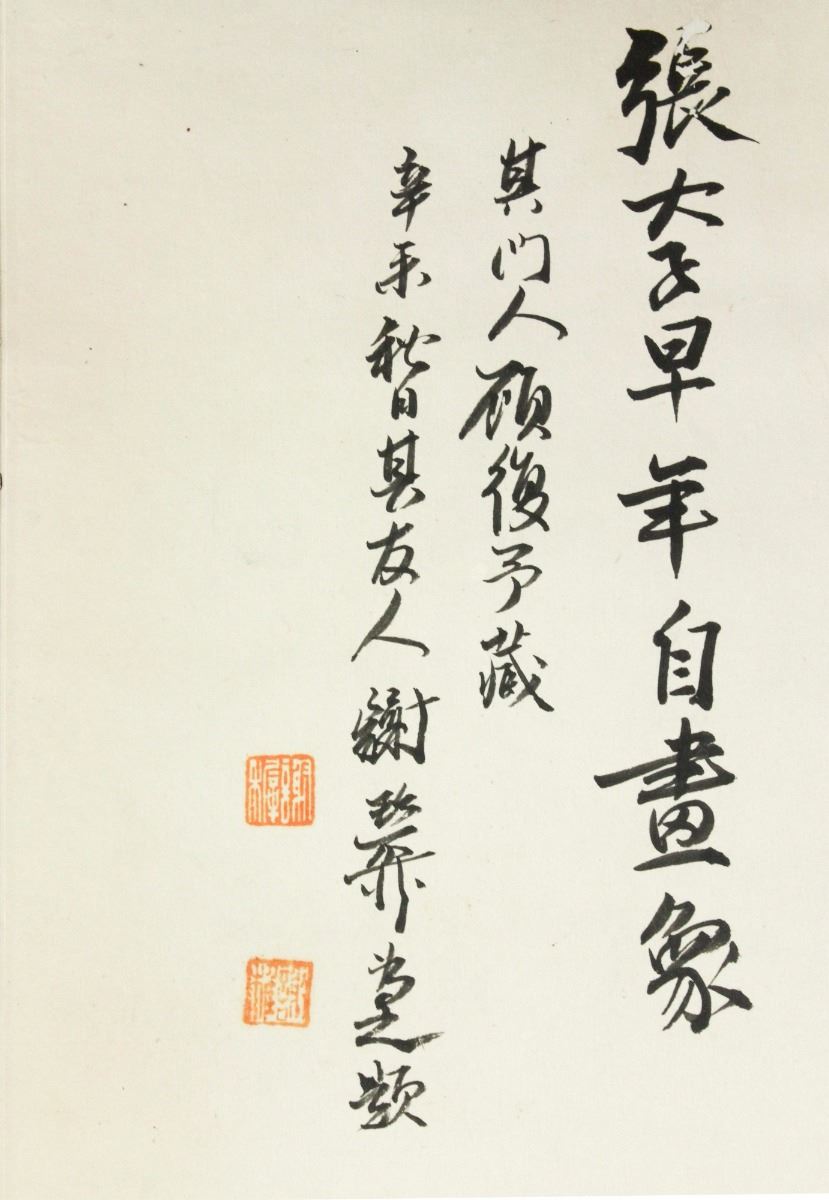 張大千早年自畫象
其門人顧復予藏
辛未秋日其友人謝題